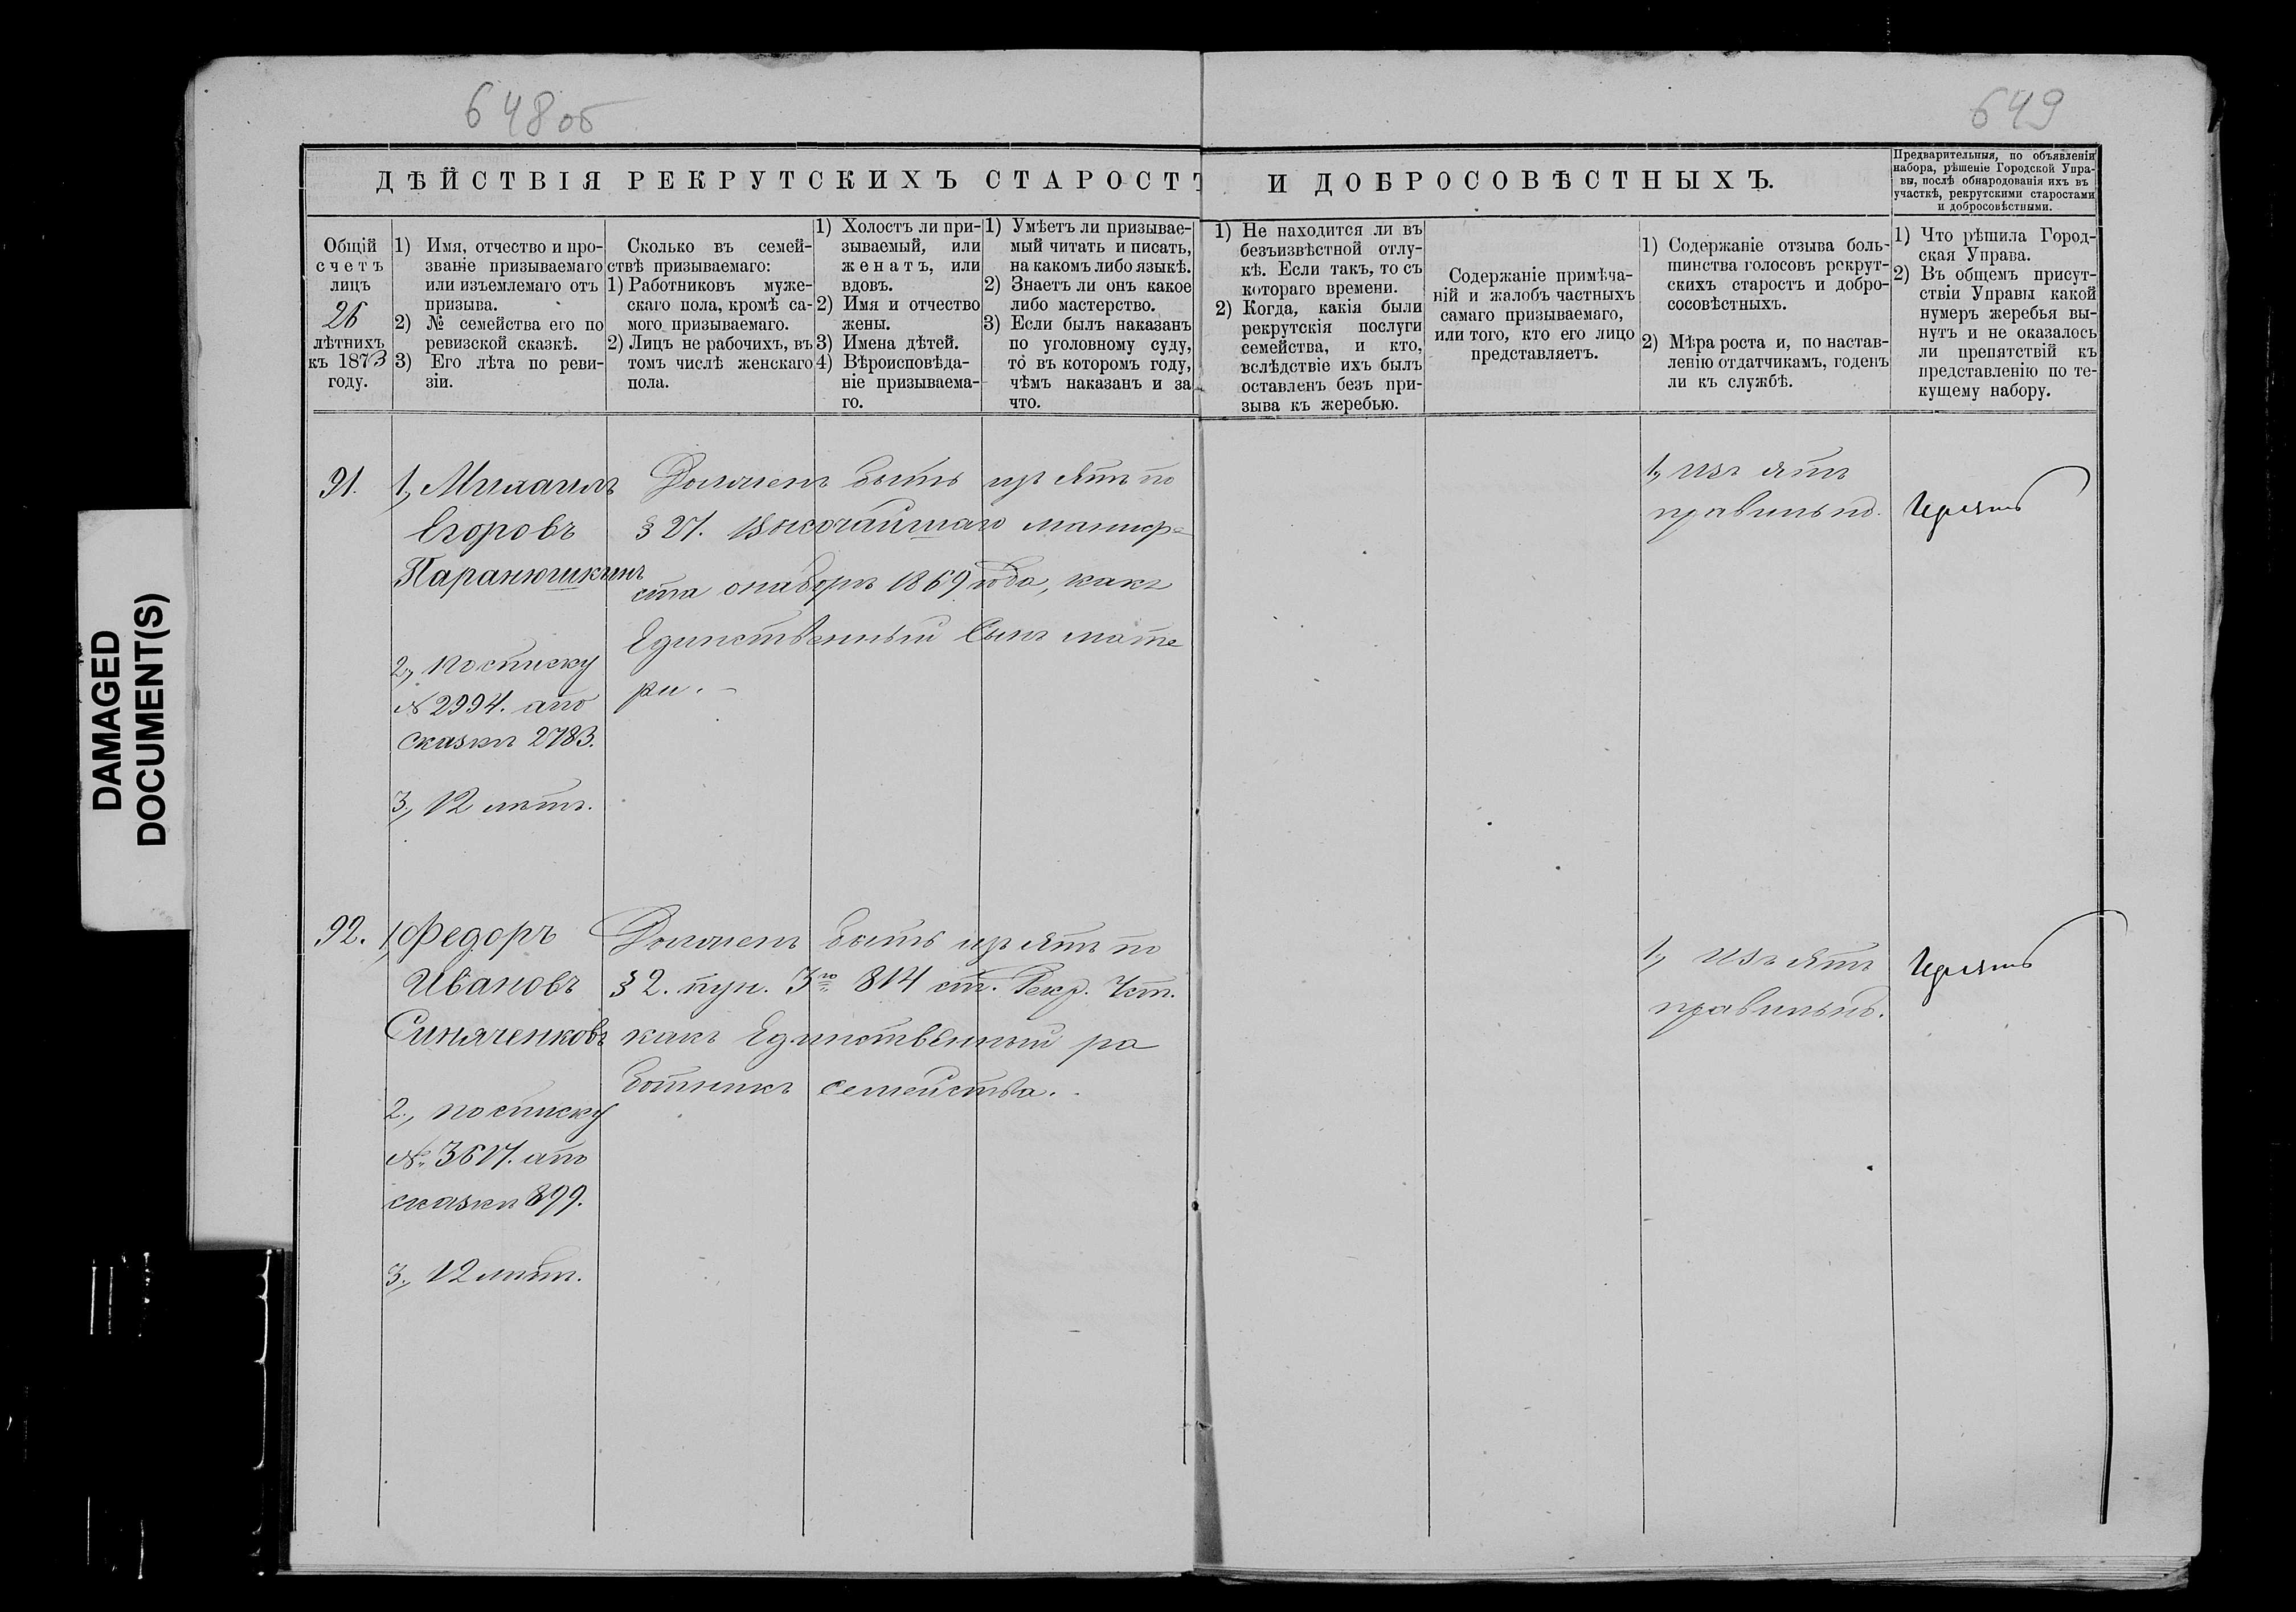 648 об
649
DAMAGED
DOCUMENT(S)
ДѢЙСТВІЯ РЕКРУТСКИХЪ СТАРОСТЪ И ДОБРОСОВѢСТНЫХЪ.
Предварительныя, по объявленіи
набора, рѣшеніе Городской Упра-
вы, послѣ обнародованія ихъ въ
участкѣ, рекрутскими старостами
и добросовѣстными.
Общій
счетъ
лицъ
26
лѣтнихъ
къ 1873
году.
1) Имя, отчество и про-
званіе призываемаго
или изъемлемаго отъ
призыва.
2) № семейства его по
ревизской сказкѣ.
3) Его лѣта по реви-
зіи.
Сколько въ семей-
ствѣ призываемаго:
1) Работниковъ муже-
скаго пола, кромѣ са-
мого призываемаго.
2) Лицъ не рабочихъ, въ
томъ числѣ женскаго
пола.
1) Холостъ ли при-
зываемый, или
женатъ, или
вдовъ.
2) Имя и отчество
жены.
3) Имена дѣтей.
4) Вѣроисповѣда-
ніе призываема-
го.
1) Умѣетъ ли призывае-
мый читать и писать,
на какомъ либо языкѣ.
2) Знаетъ ли онъ какое
либо мастерство.
3) Если былъ наказанъ
по уголовному суду,
то въ которомъ году,
чѣмъ наказанъ и за
что.
1) Не находится ли въ
безъизвѣстной отлу-
кѣ. Если такъ, то съ
котораго времени.
2) Когда, какія были
рекрутскія послуги
семейства, и кто,
вслѣдствіе ихъ былъ
оставленъ безъ при-
зыва къ жеребью.
Содержаніе примѣча-
ній и жалобъ частныхъ
самаго призываемаго,
или того, кто его лицо
представляетъ.
1) Содержаніе отзыва боль-
шинства голосовъ рекрут-
скихъ старостъ и добро-
сосовѣстныхъ.
2) Мѣра роста и, по настав-
ленію отдатчикамъ, годенъ
ли къ службѣ.
1) Что рѣшила Город-
ская Управа.
2) Въ общемъ присут-
ствіи Управы какой
нумеръ жеребья вы-
нутъ и не оказалось
ли препятствій къ
представленію по те-
кущему набору.
91.
1, Михаилъ
Егоровъ
Паранюшкинъ
2, по списку
№ 2994. а по
сказкѣ 2783.
3, 12 лѣтъ.
Долженъ быть изъятъ по
§ 27. Высочайшаго манифе-
ста о наборѣ 1869 года, какъ
Единственный Сынъ мате
ри. –
1, изъятъ
правильно.
Изъять
92.
1, Федоръ
Ивановъ
Синяченковъ
2, по списку
№ 3617. а по
сказкѣ 899.
3, 12 лѣтъ.
Долженъ быть изъятъ по
§ 2. пун. 3го 814 ст. Рекр. Уст.
какъ Единственный ра
ботникъ семейства.
1, изъятъ
правильно.
Изъять